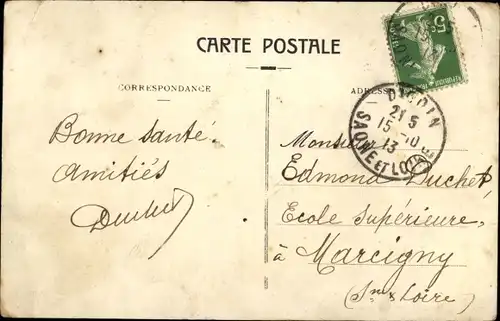 CARTE POSTALE
CORRESPONDANCE
ADRESSE
5c
DIGOIN
21 5
15 - 10
13
SAONE ET LOIRE
Bonne santé.
Amitiés
Monsieur
Edmond Duchet,
Ecole Supérieure,
à Marcigny
(Sne & Loire)